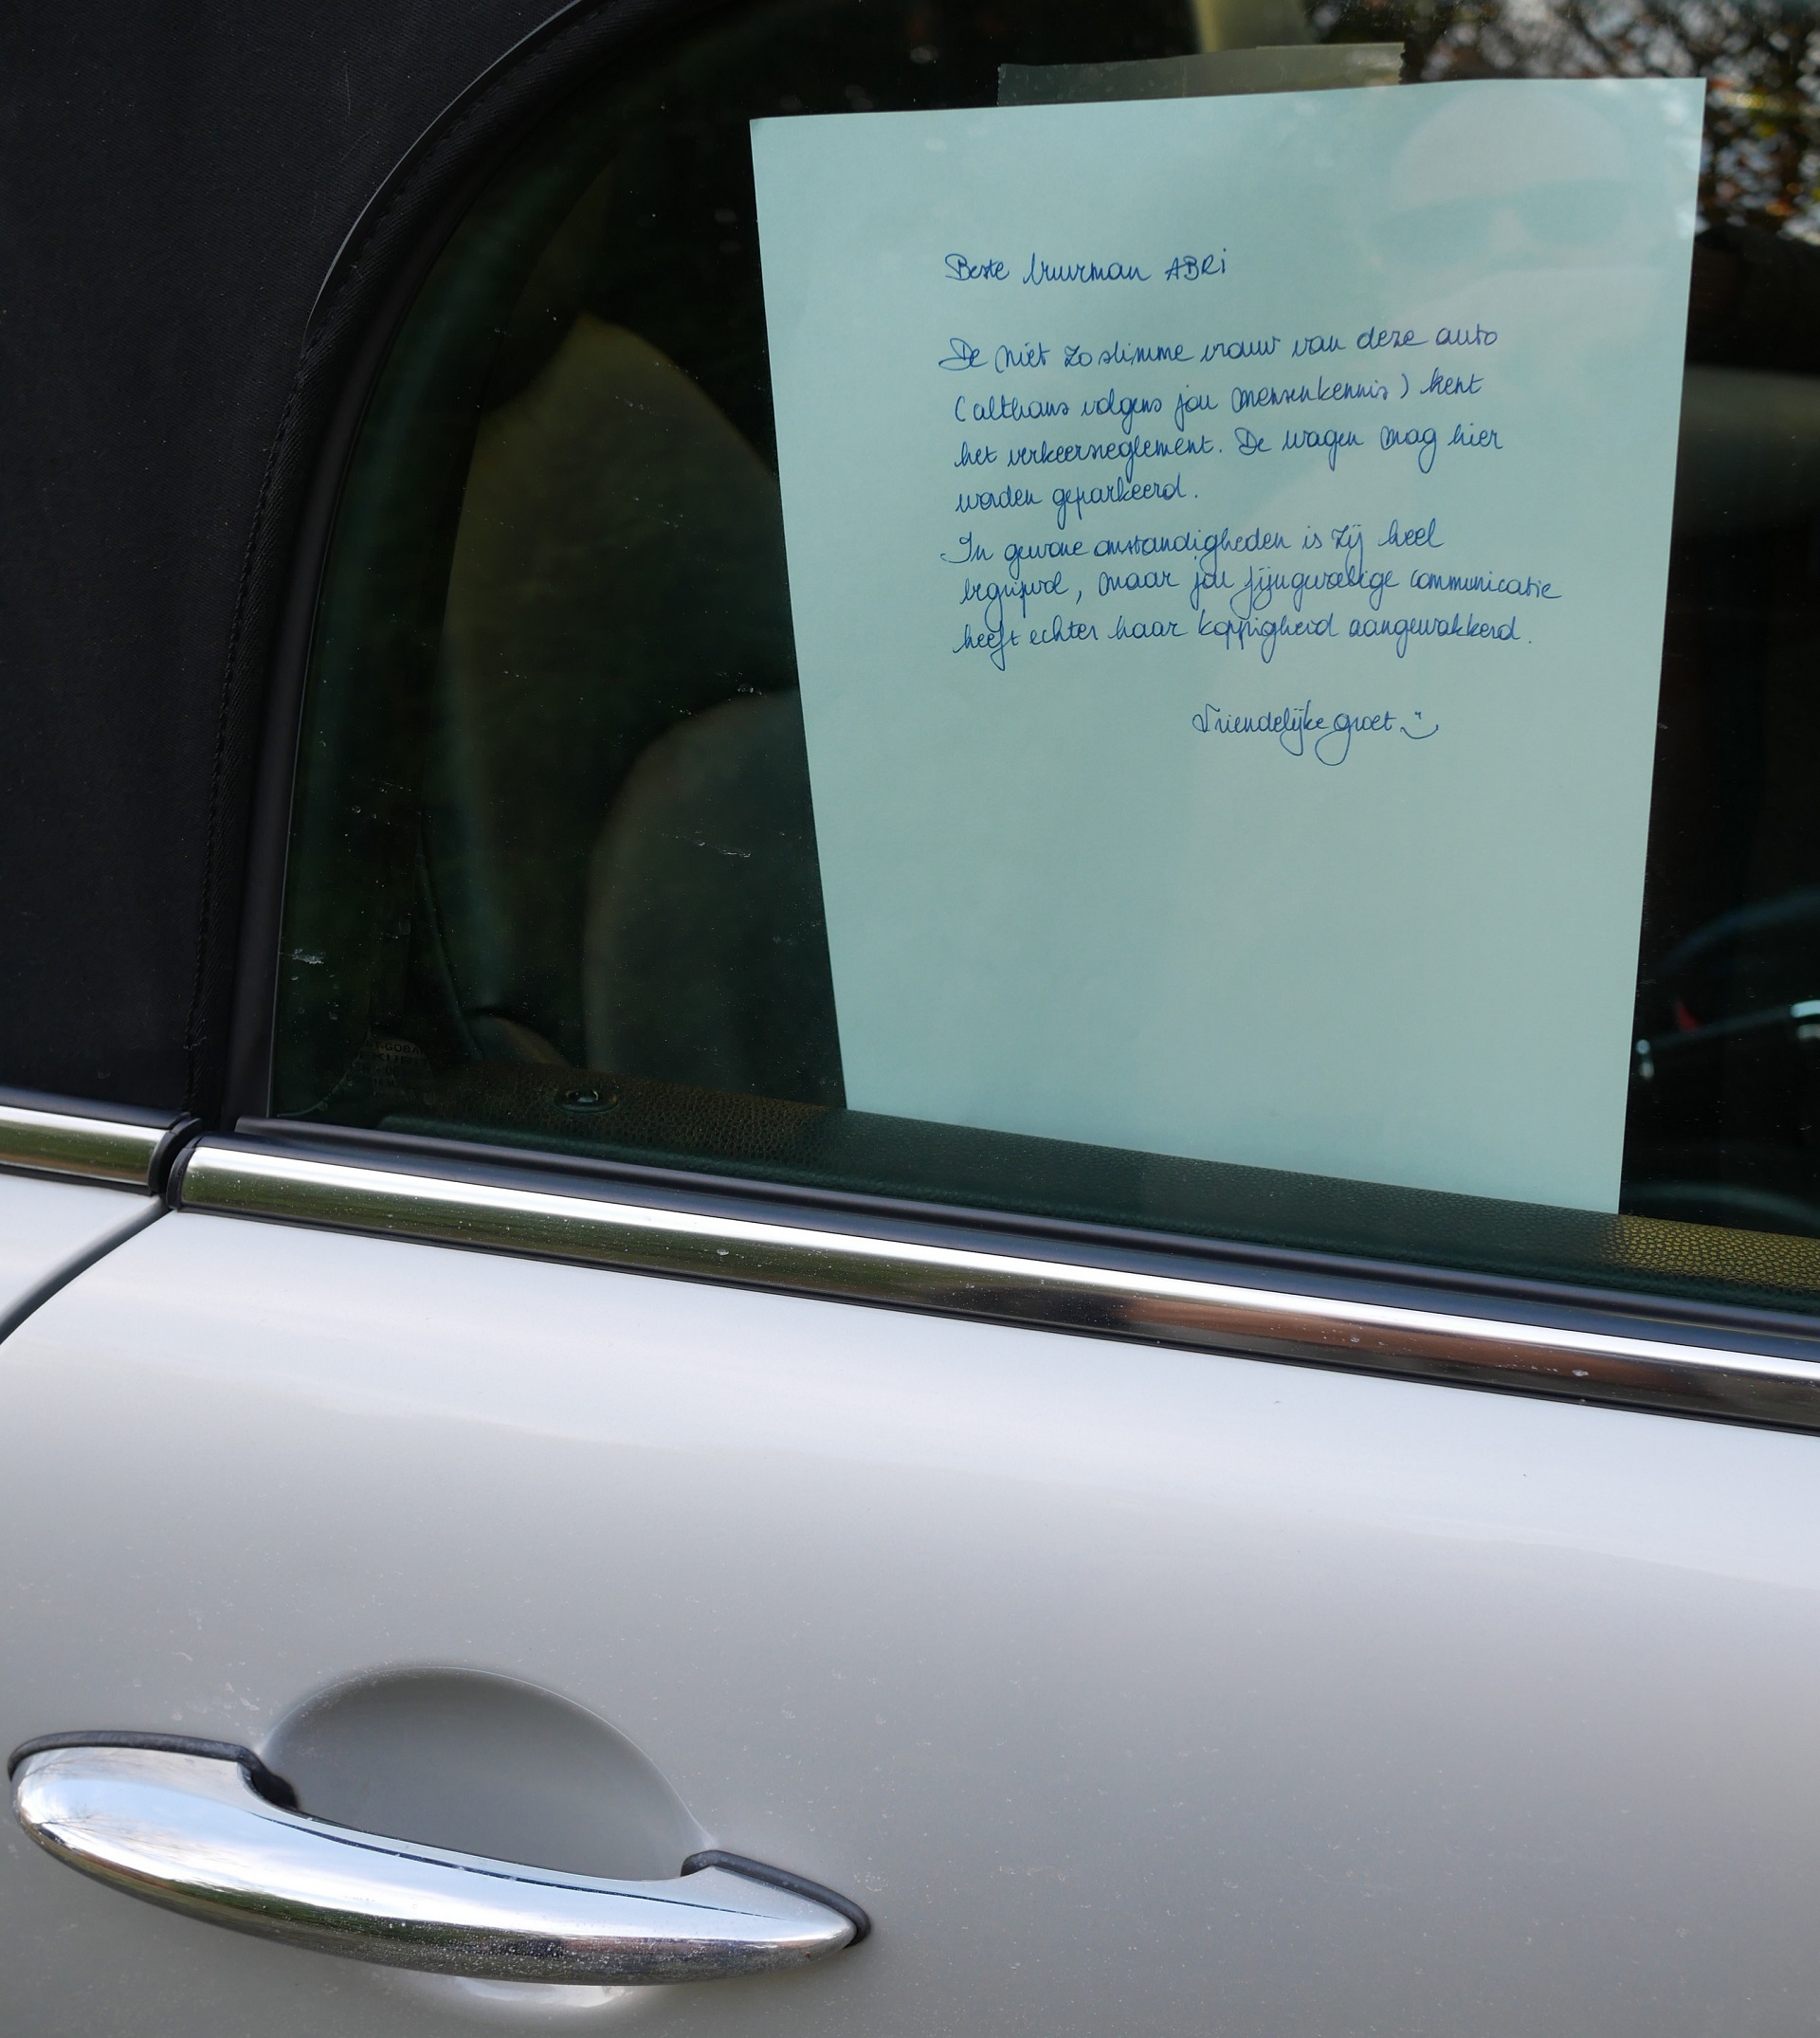 Beste buurman ABRI
De niet zo slimme vrouw van deze auto
(althans volgens jou mensenkennis) kent
het verkeersreglement. De wagen mag hier
worden geparkeerd.
In gewone omstandigheden is zij heel
begripvol, maar jou fijngevoelige communicatie
heeft echter haar koppigheid aangewakkerd.
Vriendelijke groet